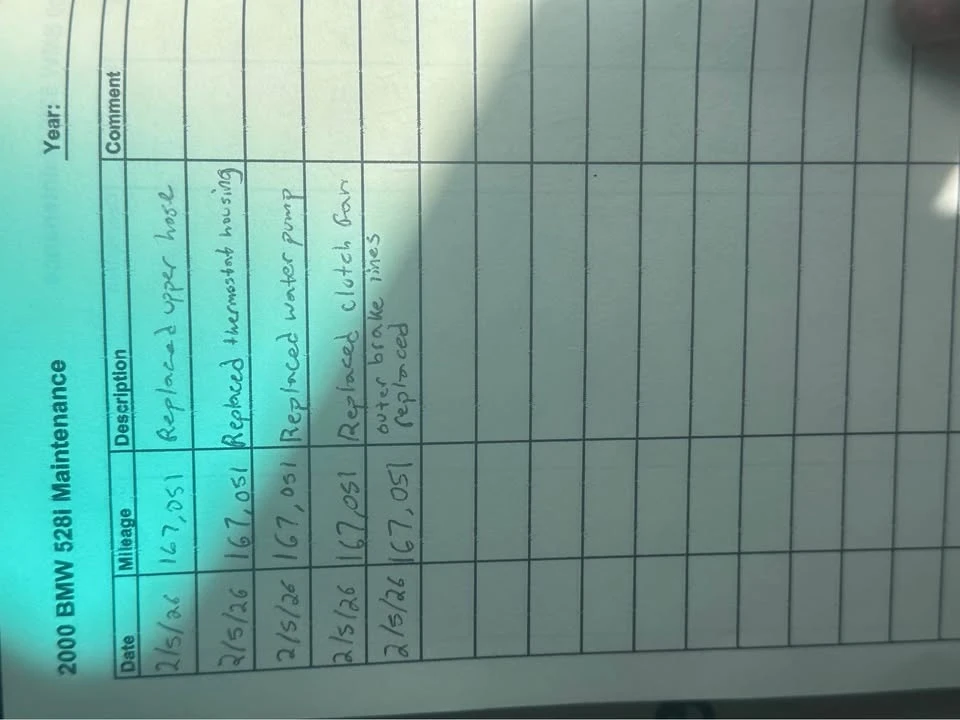 2000 BMW 528i Maintenance Year:
Date Mileage Description Comment
2/5/26 167,051 Replaced upper hose
2/5/26 167,051 Replaced thermostat housing
2/5/26 167,051 Replaced water pump
2/5/26 167,051 Replaced clutch fan
2/5/26 167,051 outer brake lines
replaced